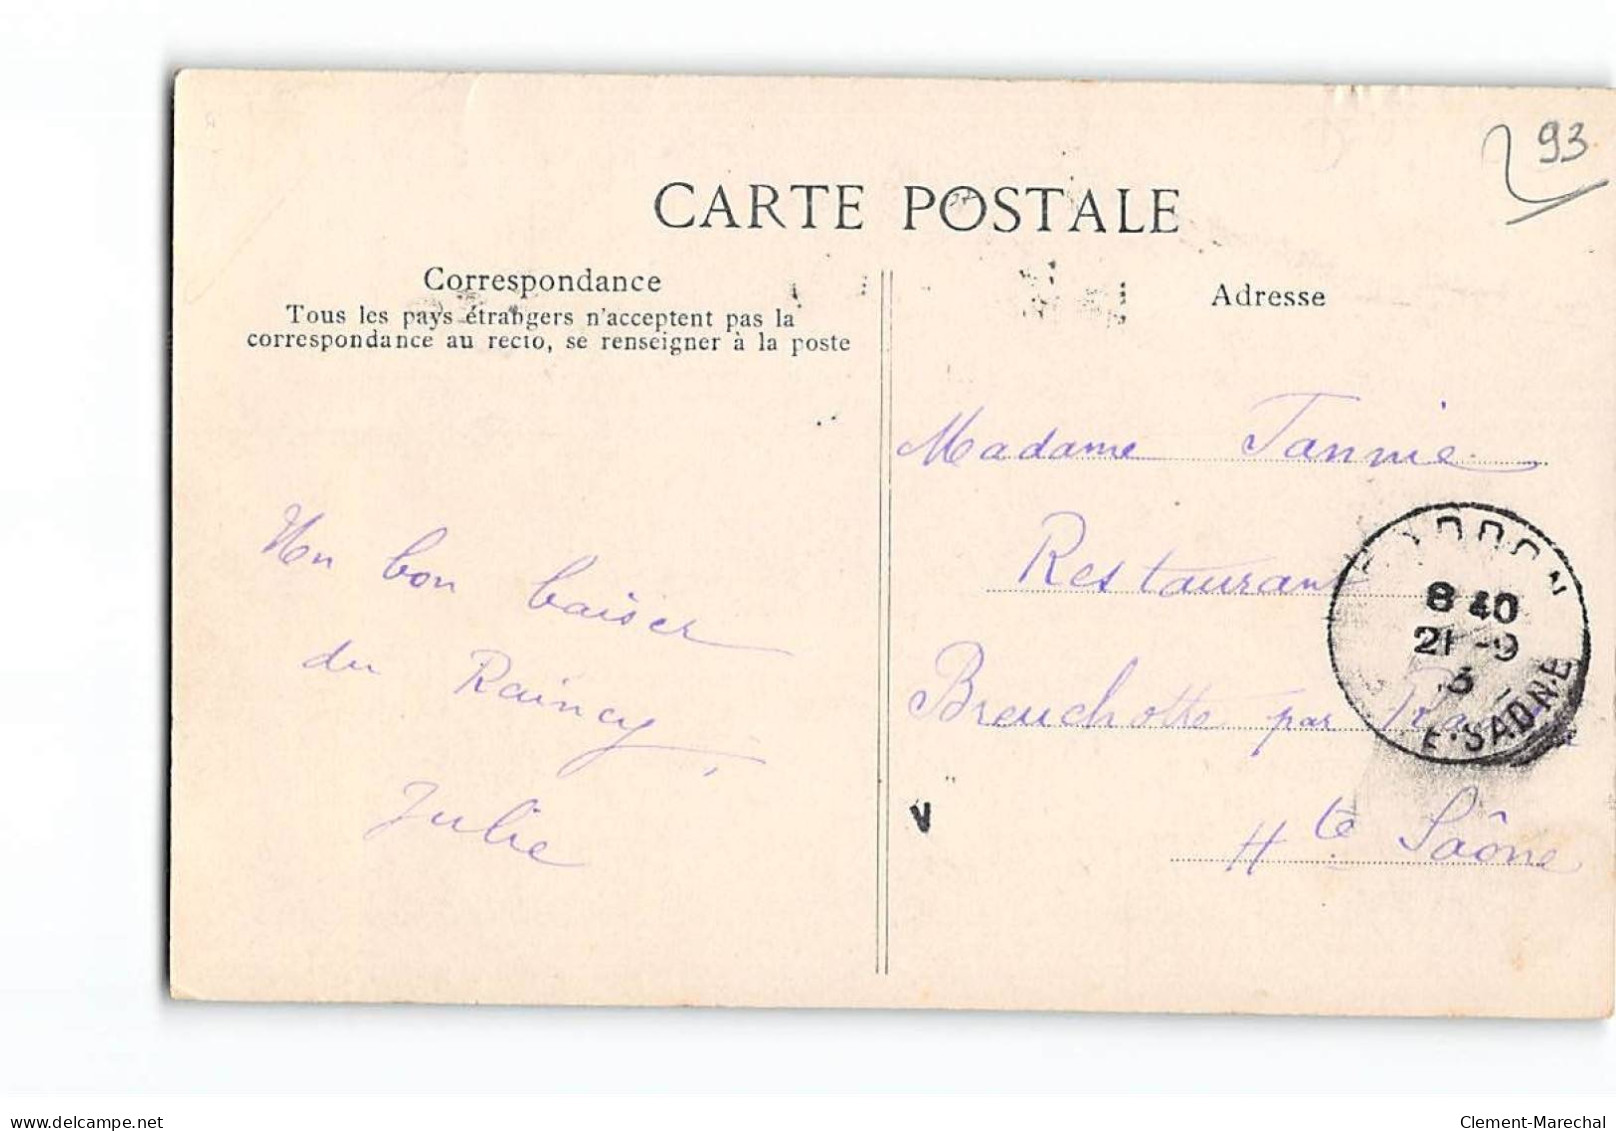 93
CARTE POSTALE
Correspondance
Tous les pays étrangers n'acceptent pas la
correspondance au recto, se renseigner à la poste
Un bon baiser
du Raincy,
Julie
Adresse
Madame Jannie
Restaurant
Breuchotte par
Hte Saône
8 40
21 -9
E·SAONE
www.delcampe.net
Clement-Marechal